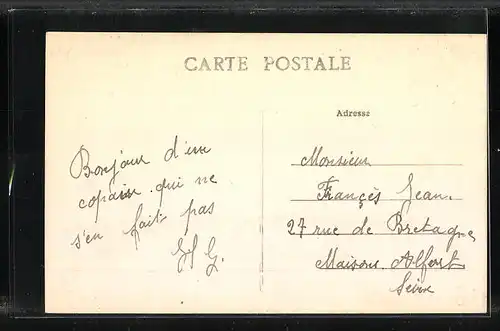 CARTE POSTALE
Adresse
Bonjour d'une
copaine qui ne
s'en fait pas
G.
Monsieur
Françès Jean.
27 rue de Bretagne
Maisons. Alfort
Seine